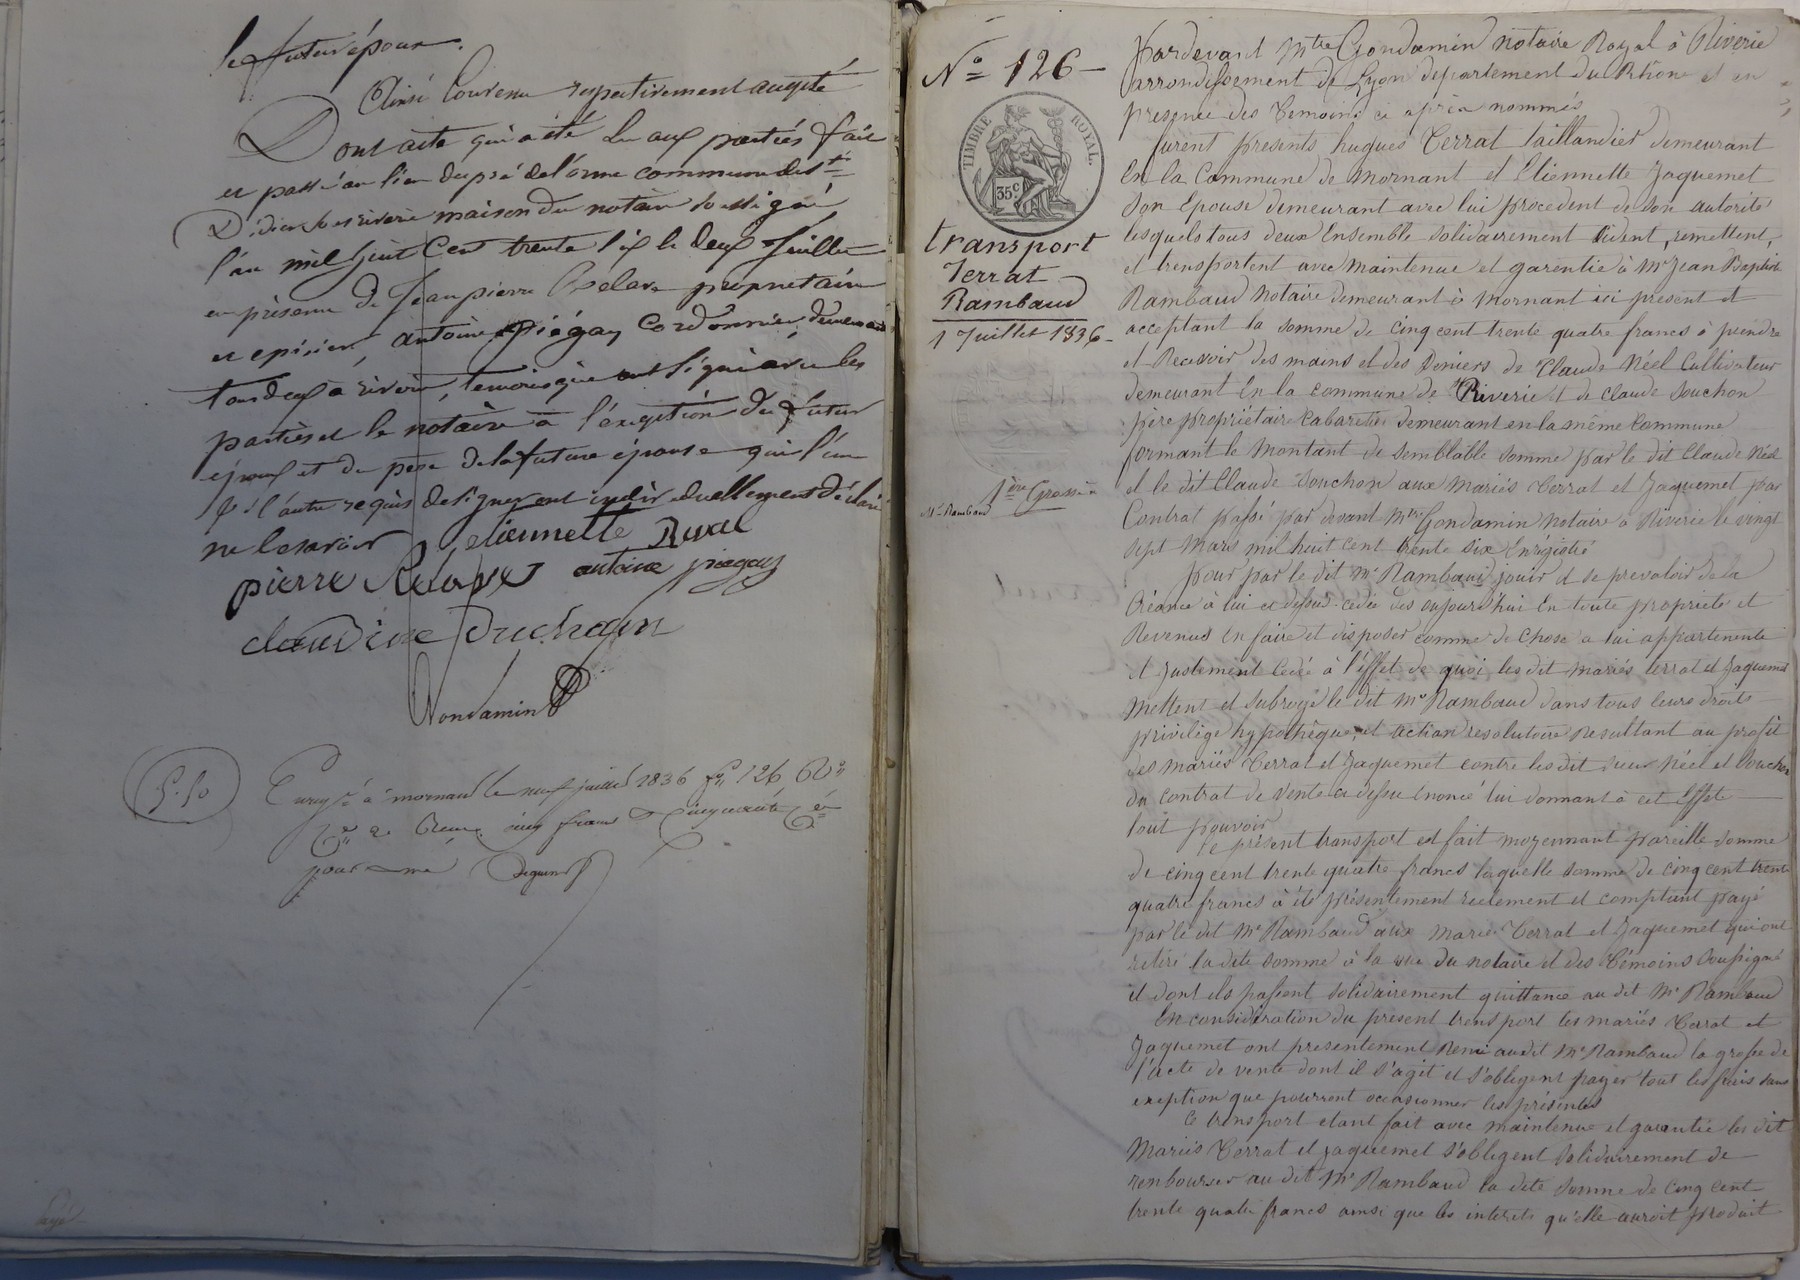 le futur époux.
Ainsi Convenu respectivement accepté
Dont acte qui a été lu aux parties fait
et passé au lieu du pré de l'orme commune de St
Didier sous riverie maison du notaire soussigné
l'an mil huit Cent trente six le deux Juillet
en présence de Jean pierre propriétaire
et epicier, antoine piégay Cordonnier demeurant
tous deux à riverie, temoins qui ont signé avec les
parties et le notaire à l'éxception du futur
époux et du pere de la future épouse qui l'un
& l'autre requis de signer ont individuellement déclaré
ne le savoir
etiennette Duval
pierre antoine piegay
claudine Duchamp
Gondamin
5.50
Enregé à mornant le neuf juillet 1836 fo 126 Vo
Reçu cinq francs cinquante
pour
No 126
TIMBRE ROYAL.
35c
transport
Terrat
Rambaud
1 Juillet 1836
1ère Grosse a
Mr Rambaud
Pardevant Mtre Gondamin notaire Royal à Riverie
arrondissement de Lyon departement du Rhône et en
presence des temoins ci après nommés
furent presents hugues Terrat taillandier demeurant
En la Commune de Mornant et Etiennette Jaquemet
son Epouse demeurant avec lui procedent de son autorité
lesquels tous deux Ensemble solidairement cedent, remettent,
et transportent avec maintenue et garentie à Mr Jean Baptiste
Rambaud notaire demeurant à Mornant ici present et
acceptant la somme de cinq cent trente quatre francs à prendre
et Recevoir des mains et des deniers de Claude Néel Cultivateur
demeurant En la commune de Riverie et de Claude Souchon
père propriétaire Cabaretier demeurant en la même Commune
formant le Montant de semblable somme par le dit Claude Néel
et le dit Claude Souchon aux Mariés Terrat et Jaquemet par
Contrat passé par devant Mtre Gondamin notaire à Riverie le vingt
sept Mars mil huit cent trente six Enregistré
pour par le dit Mr Rambaud jouir et se prevaloir de la
Créance à lui ci dessus cedée des aujourd'hui En toute propriété et
Revenus En faire et disposer comme de chose a lui appartenente
et justement Cedée à l'effet de quoi les dit mariés terrat et Jaquemet
mettent et subroge le dit Mr Rambaud dans tous leurs droits
privilège hypothèque, et action resolutoire Resultant au profit
des mariés Terrat et Jaquemet contre les dit sieur Néel et Souchon
du contrat de vente ci dessus Enoncé lui donnant à cet Effet
tout pouvoir
le présent transport est fait moyennant pareille somme
de cinq cent trente quatre francs laquelle somme de cinq cent trente
quatre francs à été présentement reelement et comptant payé
par le dit Mr Rambaud aux Mariés Terrat et Jaquemet qui ont
retiré la dite somme à la vue du notaire et des témoins soussigné
et dont ils passent solidairement quittance au dit Mr Rambaud
En considération du présent transport les mariés Terrat et
Jaquemet ont presentement Remi audit Mr Rambaud la grosse de
l'acte de vente dont il s'agit et s'obligent payer tout les frais sans
exeption que pourront occasionner les présentes
Ce transport etant fait avec maintenue et garantie les dit
Mariés Terrat et Jaquemet s'obligent solidairement de
rembourser au dit Mr Rambaud la dite somme de cinq cent
trente quatre francs ainsi que les interets qu'elle auroit produit